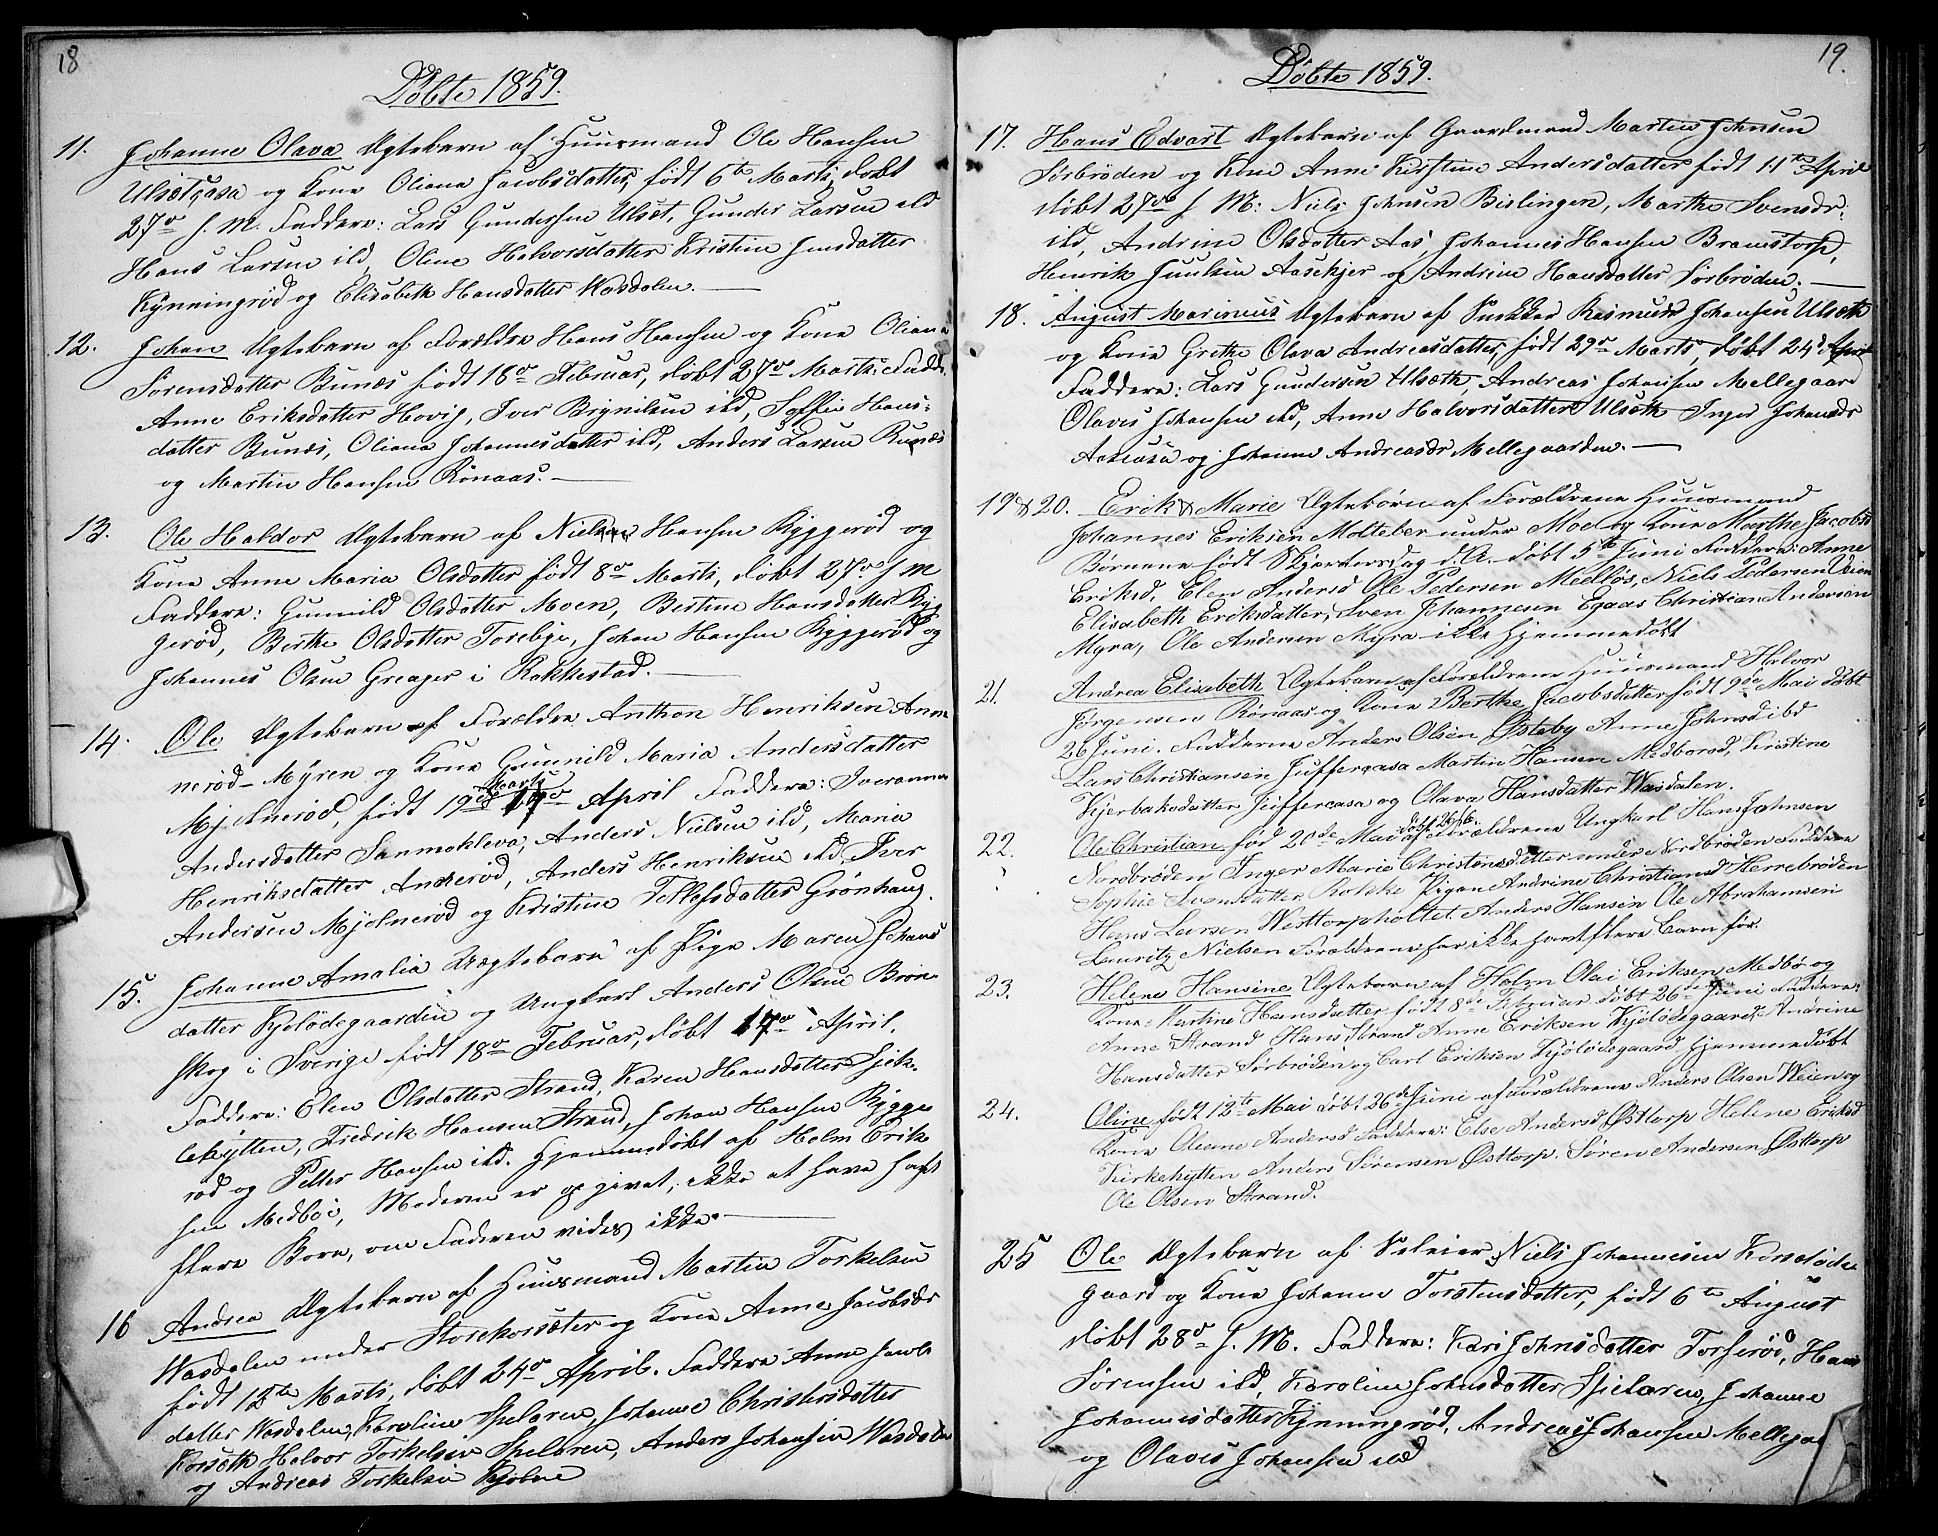 18
Döbte 1859.
11. Johanne Olava Ægtebarn af Huusmand Ole Hansen
Ulsetsasa og Kone Oliana Jacobsdatter, født 6te Marts, døbt
27de s. M. Faddere: Lars Gundersen Ulset, Gunder Larsen ibd
Hans Larsen ibd, Oline Halvorsdatter Kristine Jensdatter
Kynningrød og Elisabeth Hansdatter Wasdalen.
12. Johan Ægtebarn af Forældre Hans Hansen og Kone Oliana
Sørensdatter Bunæs født 18de Februar, døbt 27de Marts: Fadd.
Anne Eriksdatter Hovig, Iver Brynilsen ibd, Soffie Hans-
datter Bunæs, Oliana Johannesdatter ibd, Anders Larsen Bunæs
og Martin Hansen Rönaas.
13. Ole Haldor Ægtebarn af Niels Hansen Kyggerød og
Kone Anne Maria Olsdatter født 8de Marts, døbt 27de s M
Faddere: Gunnild Olsdatter Moen, Bertine Hansdatter Kyg
gerød, Berthe Olsdatter Torebye, Johan Hansen Kyggerød og
Johannes Olsen Greager i Rakkestad.
14. Ole Ægtebarn af Forældre Anthon Henriksen Anne
nerød-Myren og Kone Gunnild Maria Andersdatter
Mjølnerød, født 19de Marts 17de April Faddere: Iveranna
Andersdatter Sanmokleva, Anders Nielsen ibd, Maria
Henriksdatter Annerød, Anders Henriksen ibd, Iver
Andersen Mjølnerød og Kristine Tollefsdatter Grønhaug.
15. Johanne Amalia Uægtebarn af Pige Maren Johans
datter Kjølødegaarden og Ungkarl Anders Olsen Born-
skog i Sverige født 18de Februar, døbt 17de April.
Faddere: Elen Olsdatter Strand, Karen Hansdatter
hytten, Fredrik Hansen Strand, Johan Hansen Kygge
rød og Petter Hansen ibd. Hjemmedøbt af Holm Erik
sen Medboe, Moderen er opgivet, ikke at have havt
flere Børn, om Faderen vides ikke.
16 Andrea Ægtebarn af Huusmand Martin Torkelsen
Wasdalen under Storekorsæter og Kone Anne Jacobsdr
født 12te Marts, døbt 24de April. Faddere Anne Jacobs
datter Wasdalen, Karoline Spelaren, Johanne Christensdatter
Korsæth Halvor Torkelsen Spelaren, Anders Johansen Wasdalen
og Andreas Torkelsen Kjølne
19.
Döbte 1859.
17. Hans Edvart Ægtebarn af Gaardmand Martin Johnsen
Sørbrøden og Kone Anne Kirstine Andersdatter født 11te April
døbt 27de s M: Niels Johnsen Bislingen, Marthe Svensdr.
ibd, Andrine Olsdatter Aas, Johannes Hansen Bramstorp,
Henrik Juulsen Aasekjer og Andrine Hansdatter Sørbrøden.
18. August Marinus Ægtebarn af Snekker Rasmus Johansen Ulseth
og Kone Grethe Olava Andreasdatter, født 29de Marts, døbt 24de April
Faddere: Lars Gundersen Ulsæth, Andreas Johansen Mellegaard
Olavis Johansen ibd, Anne Halvorsdatter Ulsæth Inger Johansdr
Aaseasa og Johanne Andreasdr Mellegaarden.
19 & 20. Erik & Marie Ægtebørn af Forældrene Huusmand
Johannes Eriksen Molteber under Moe og Kone Marthe Jacobsd
Børnene født Skjertorsdag d. A. døbt 5te Juni Faddere: Anne
Eriksd, Elen Andersd Ole Pedersen Medbøs, Niels Pedersen Veien
Elisabeth Eriksdatter, Sven Johannesen Egaas Christian Andersen
Myra, Ole Andersen Myra ikke hjemmedøbt
21. Andrea Elisabeth Ægtebarn af Forældrene Huusmand Halvor
Jørgensen Rønaas og Kone Berthe Jacobsdatter født 9de Mai døbt
26 Juni. Fadderne Anders Olsen Østeby Anne Johnsd ibd
Lars Christiansen Juffercasa Martin Hansen Medborød, Kristine
Kjerbaksdatter Juffercasa og Olava Hansdatter Wasdalen.
22. Ole Christian fød 20de Mai døbt 26/6. af Forældrene Ungkarl Hans Johnsen
Nordbrøden Inger Marie Christensdatter under Nordbrøden Faddere
Sophie Svensdatter Rokke Pigen Andrine Christiansd Herrebrøden
Hans Larsen Westtorpholtet. Anders Hansen Ole Abrahamsen
Lauritz Nielsen Forældrene har ikke havt flere Barn før.
23. Helene Hansine Ægtebarn af Holm Olai Eriksen Medbø og
Kone Martine Hansdatter født 8de Februar døbt 26de Juni Faddere:
Anne Strand Hans Strand Anne Eriksen Kjølødegaard, Andrine
Hansdatter Sørbrøden og Carl Eriksen Kjølødegaard hjemmedøbt
24. Oline født 12te Mai døbt 26de Juni af Forældrene Anders Olsen Weien og
Kone Oleane Andersd Faddere: Else Andersd Østtorp Helene Eriksd
Kirkehytten Anders Sørensen Østtorp. Søren Andersen Østtorp
Ole Olsen Strand.
25 Ole Ægtebarn af Selveier Niels Johannesen Korseløde
gaard og Kone Johanne Torstensdatter, født 6te August
døbt 28de s. M. Faddere: Kari Johnsdatter Torserød, Hans
Sørensen ibd, Karoline Johnsdatter Spelaren, Johanne
Johannesdatter Kynningrød, Andreas Johansen Mellega
og Olavis Johansen ibd